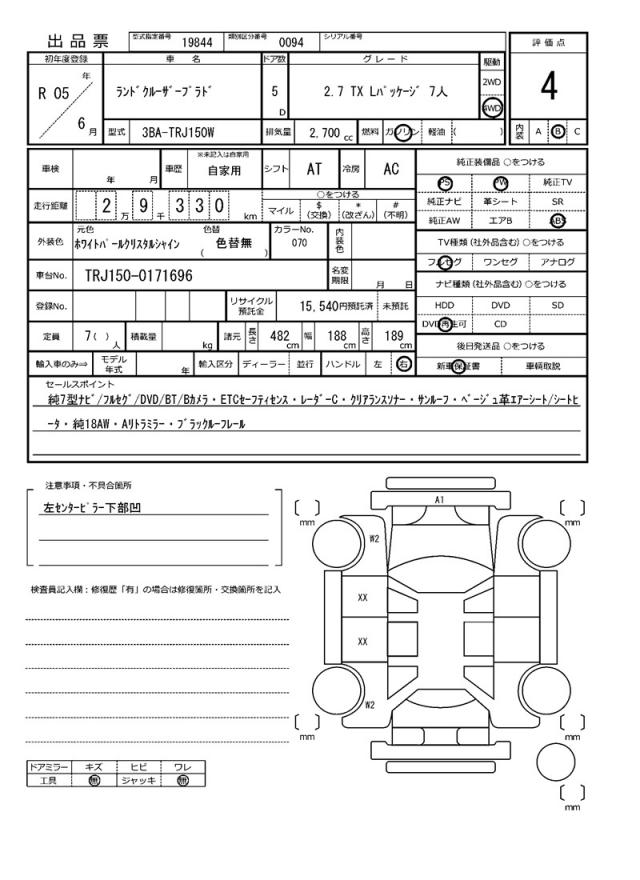 出品票 型式指定番号 19844 類別区分番号 0094 シリアル番号
初年度登録 車名 ドア数 グレード 駆動 評価点
R 05 年 6 月 ﾗﾝﾄﾞｸﾙｰｻﾞｰﾌﾟﾗﾄﾞ 5 D 2.7 TX Lﾊﾟｯｹｰｼﾞ 7人 2WD 4WD 4
型式 3BA-TRJ150W 排気量 2,700 cc 燃料 ガソリン 軽油 ( ) 内装 A B C
車検 年 月 車歴 ※未記入は自家用 自家用 シフト AT 冷房 AC
走行距離 2 万 9 千 3 3 0 km
○をつける
マイル $ (交換) * (改ざん) # (不明)
外装色 元色 ﾎﾜｲﾄﾊﾟｰﾙｸﾘｽﾀﾙｼｬｲﾝ 色替 ( 色替無 ) カラーNo. 070 内装色
車台No. TRJ150-0171696 名変期限 月 日
登録No. リサイクル預託金 15,540円預託済 未預託
定員 7( ) 人 積載量 kg 諸元 長さ 482 cm 幅 188 cm 高さ 189 cm
輸入車のみ⇒ モデル年式 年 輸入区分 ディーラー 並行 ハンドル 左 右
純正装備品 ○をつける
PS PW 純正TV
純正ナビ 革シート SR
純正AW エアB ABS
TV種類 (社外品含む) ○をつける
フルセグ ワンセグ アナログ
ナビ種類 (社外品含む) ○をつける
HDD DVD SD
DVD再生可 CD
後日発送品 ○をつける
新車保証書 車輌取説
セールスポイント
純7型ﾅﾋﾞ/ﾌﾙｾｸﾞ/DVD/BT/Bｶﾒﾗ・ETCｾｰﾌﾃｨｾﾝｽ・ﾚｰﾀﾞｰC・ｸﾘｱﾗﾝｽｿﾅｰ・ｻﾝﾙｰﾌ・ﾍﾞｰｼﾞｭ革ｴｱｰｼｰﾄ/ｼｰﾄﾋ
ｰﾀ・純18AW・Aﾘﾄﾗﾐﾗｰ・ﾌﾞﾗｯｸﾙｰﾌﾚｰﾙ
注意事項・不具合箇所
左ｾﾝﾀｰﾋﾟﾗｰ下部凹
検査員記入欄：修復歴「有」の場合は修復箇所・交換箇所を記入
ドアミラー キズ ヒビ ワレ
工具 無 ジャッキ 無
A1
mm
mm
W2
XX
XX
W2
mm
mm
mm